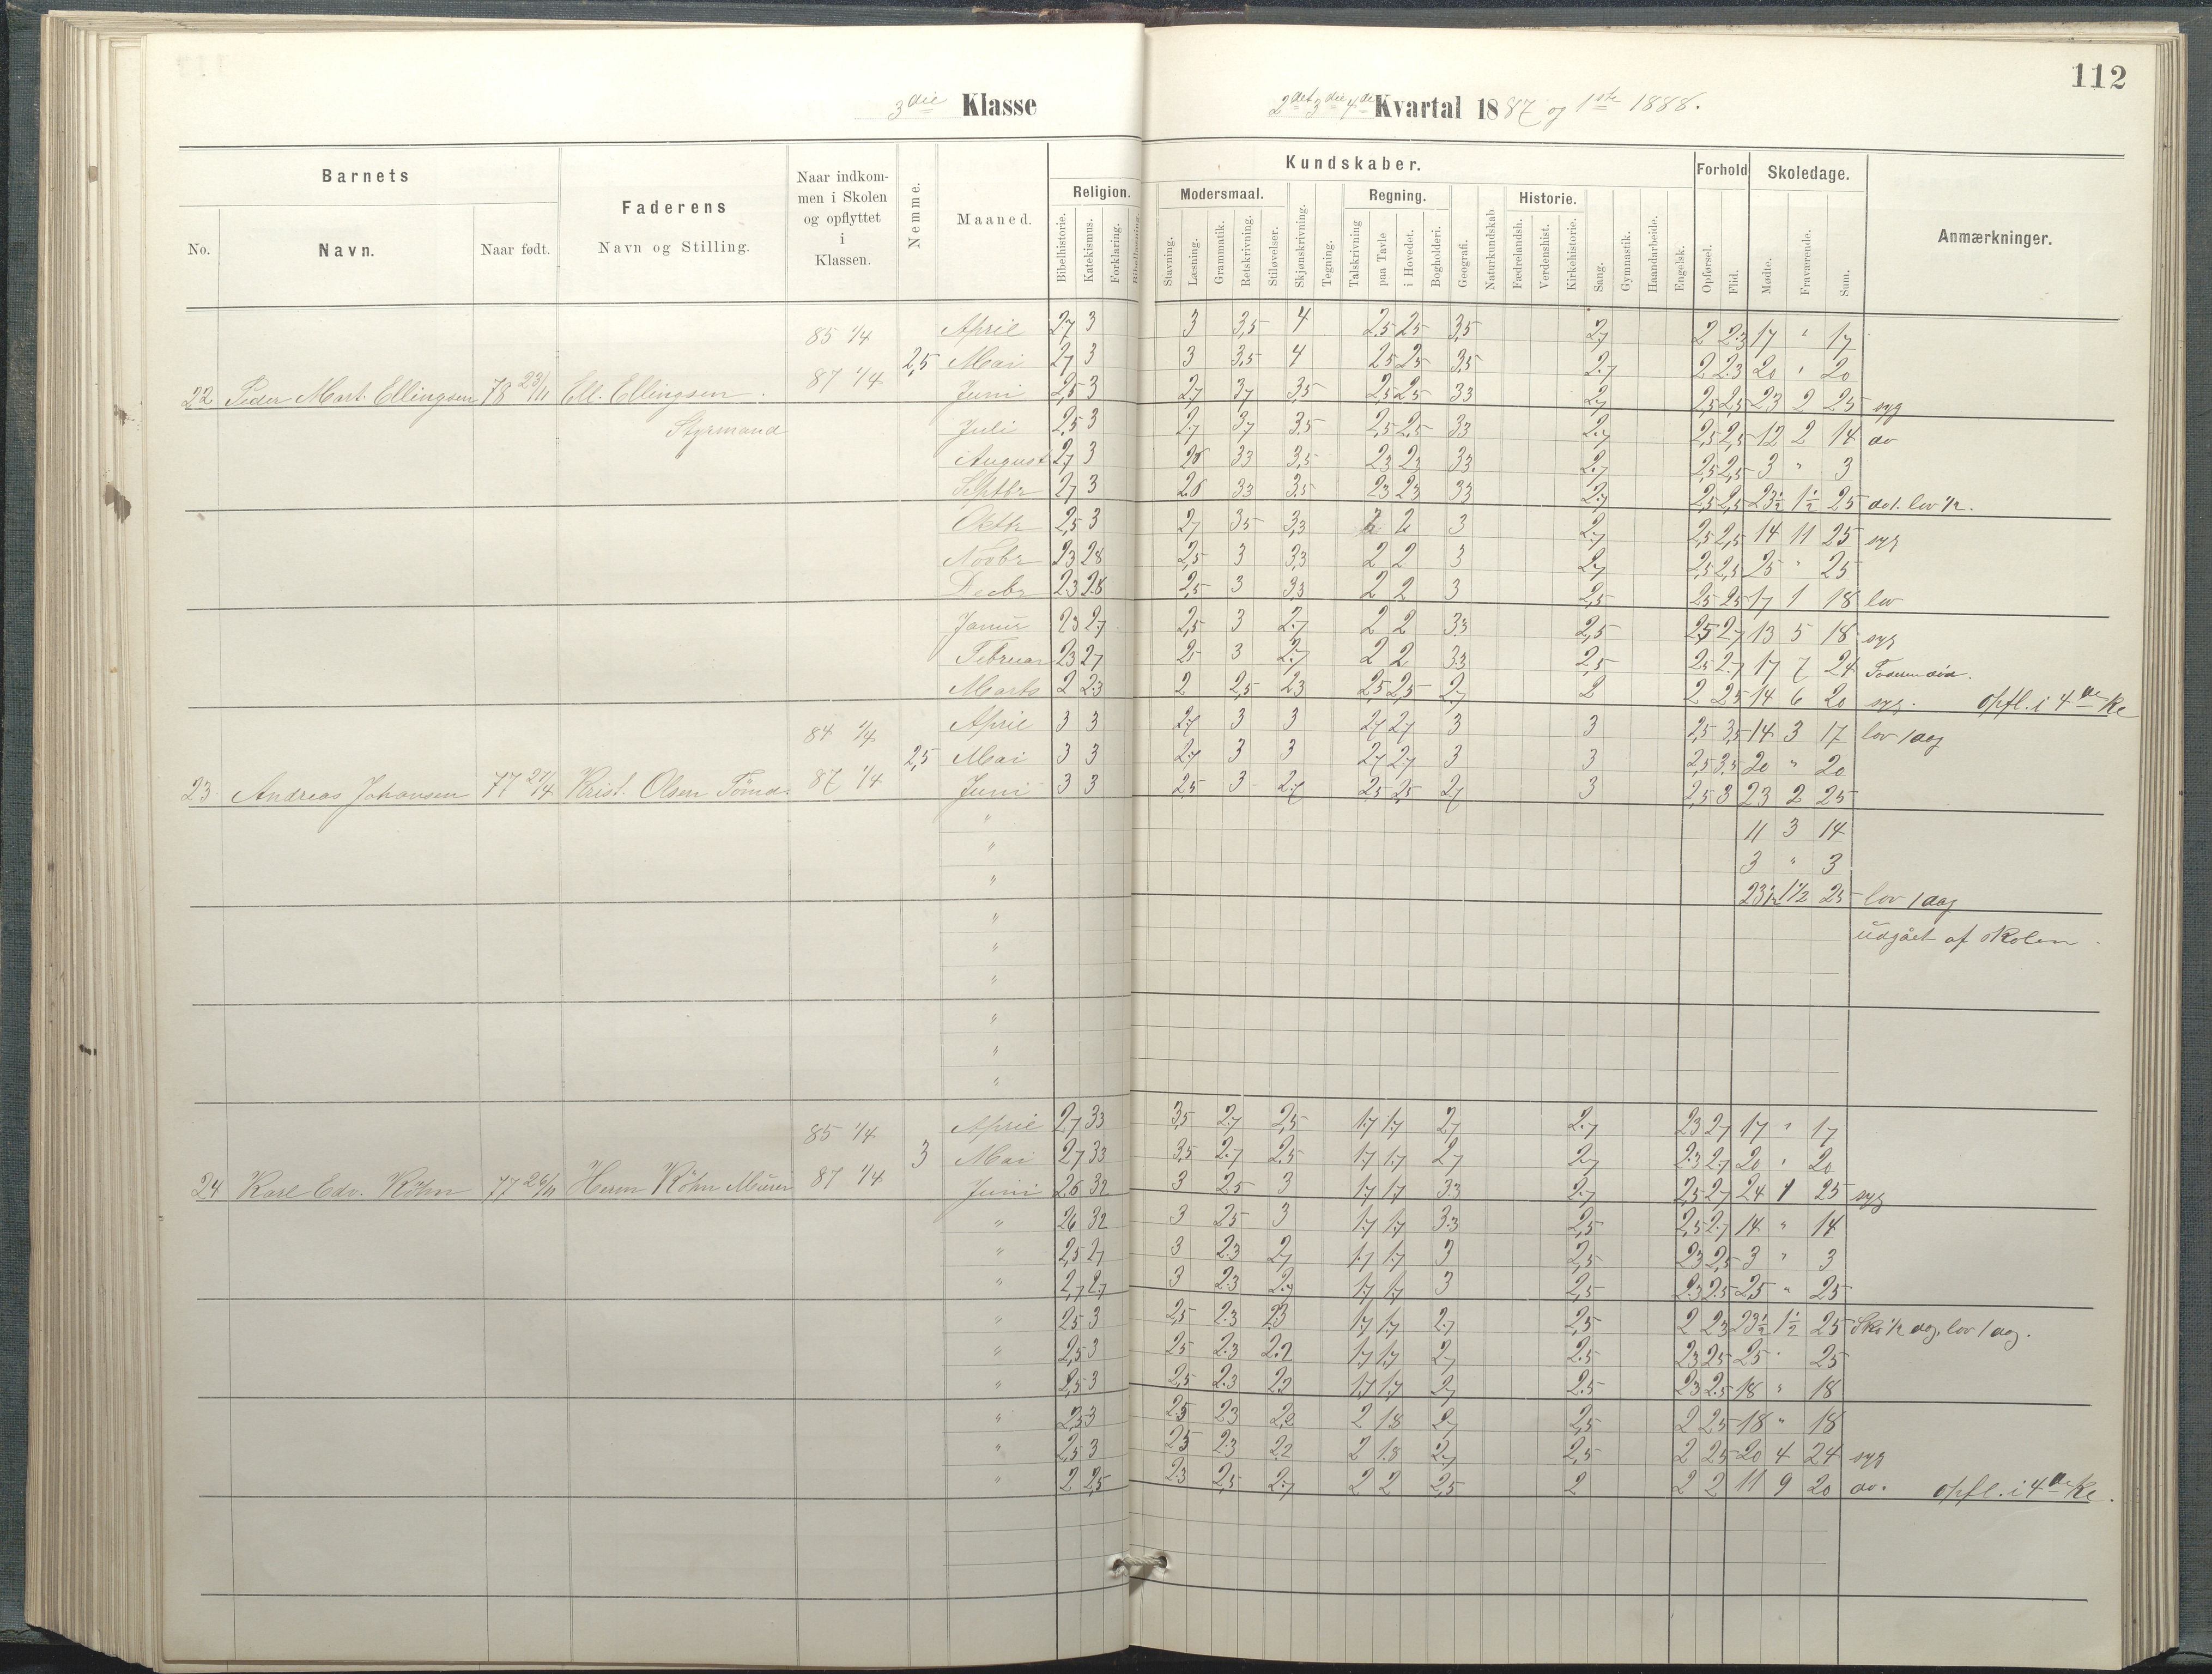 112
3die Klasse
2det 3die 4de Kvartal 1887 og 1ste 1888.
Barnets
Faderens
Naar indkommen i Skolen og opflyttet i Klassen.
Nemme.
Maaned.
Kundskaber.
Forhold
Skoledage.
Anmærkninger.
No.
Navn.
Naar født.
Navn og Stilling.
Religion.
Modersmaal.
Regning.
Historie.
Bibelhistorie. Katekismus. Forklaring. Bibellæsning. Stavning. Læsning. Grammatik. Retskrivning. Stiløvelser. Skjønskrivning. Tegning. Talskrivning paa Tavle i Hovedet. Bogholderi. Geografi. Naturkundskab Fædrelandsh. Verdenshist. Kirkehistorie. Sang. Gymnastik. Haandarbeide. Engelsk. Opførsel. Flid. Mødte. Fraværende. Sum.
85 1/4 April 2,7 3 3 3,5 4 2,5 2,5 3,5 2,7 2 2,3 17 " 17
2,5 Mai 2,7 3 3 3,5 4 2,5 2,5 3,5 2,7 2 2,3 20 " 20
22 Peder Mart. Ellingsen 78 23/11 Ell. Ellingsen. 87 1/4 Juni 2,5 3 2,7 3,7 3,5 2,5 2,5 3,3 2,7 2,5 2,5 23 2 25 syg
Styrmand Juli 2,5 3 2,7 3,7 3,5 2,5 2,5 3,3 2,7 2,5 2,5 12 2 14 do
August 2,7 3 2,8 3,3 3,5 2,3 2,3 3,3 2,7 2,5 2,5 3 " 3
Septbr 2,7 3 2,8 3,3 3,5 2,3 2,3 3,3 2,7 2,5 2,5 23 1/2 1 1/2 25 do 1. lov 1/2.
Oktbr 2,5 3 2,7 3,5 3,3 2 2 3 2,7 2,5 2,5 14 11 25 syg
Novbr 2,3 2,8 2,5 3 3,3 2 2 3 2,7 2,5 2,5 25 " 25
Decbr 2,3 2,8 2,5 3 3,3 2 2 3 2,5 2,5 2,5 17 1 18 lov
Januar 2,3 2,7 2,5 3 2,7 2 2 3,3 2,5 2,5 2,7 13 5 18 syg
Februar 2,3 2,7 2,5 3 2,7 2 2 3,3 2,5 2,5 2,7 17 7 24 Faderen død.
Marts 2 2,3 2 2,5 2,3 2,5 2,5 2,7 2 2 2,5 14 6 20 syg. opfl. i 4de Kl
84 1/4 April 3 3 2,7 3 3 2,7 2,7 3 3 2,5 3,5 14 3 17 lov 1 dag
2,5 Mai 3 3 2,7 3 3 2,7 2,7 3 3 2,5 3,5 20 " 20
23 Andreas Johansen 77 27/4 Krist. Olsen Tømd. 87 1/4 Juni 3 3 2,5 3 2,7 2,5 2,5 2,7 3 2,5 3 23 2 25
" 11 3 14
" 3 " 3
" 23 1/2 1 1/2 25 lov 1 dag
"
" udgået af skolen.
"
"
"
"
85 1/4 April 2,7 3,3 3,5 2,7 2,5 1,7 1,7 2,7 2,7 2,3 2,7 17 " 17
3 Mai 2,7 3,3 3,5 2,7 2,5 1,7 1,7 2,7 2,7 2,3 2,7 20 " 20
24 Karl Edv. Köhn 77 26/11 Herm Köhn Murer 87 1/4 Juni 2,6 3,2 3 2,5 3 1,7 1,7 3,3 2,7 2,5 2,7 24 1 25 syg
" 2,6 3,2 3 2,5 3 1,7 1,7 3,3 2,5 2,5 2,7 14 " 14
" 2,5 2,7 3 2,3 2,7 1,7 1,7 3 2,5 2,3 2,5 3 " 3
" 2,7 2,7 3 2,3 2,7 1,7 1,7 3 2,5 2,3 2,5 25 " 25
" 2,5 3 2,5 2,3 2,3 1,7 1,7 2,7 2,5 2 2,3 23 1/2 1 1/2 25 Sko 1/2 dag, lov 1 dag.
" 2,5 3 2,5 2,3 2,2 1,7 1,7 2,7 2,5 2,3 2,5 25 " 25
" 2,5 3 2,5 2,3 2,2 1,7 1,7 2,7 2,5 2,3 2,5 18 " 18
" 2,3 3 2,5 2,3 2,2 2 1,8 2,7 2,5 2 2,5 18 " 18
" 2,5 3 2,5 2,3 2,2 2 1,8 2,7 2,5 2 2,5 20 4 24 syg
" 2 2,5 2,3 2,5 2,7 2 2 2,5 2 2 2 11 9 20 do. opfl. i 4de Kl.